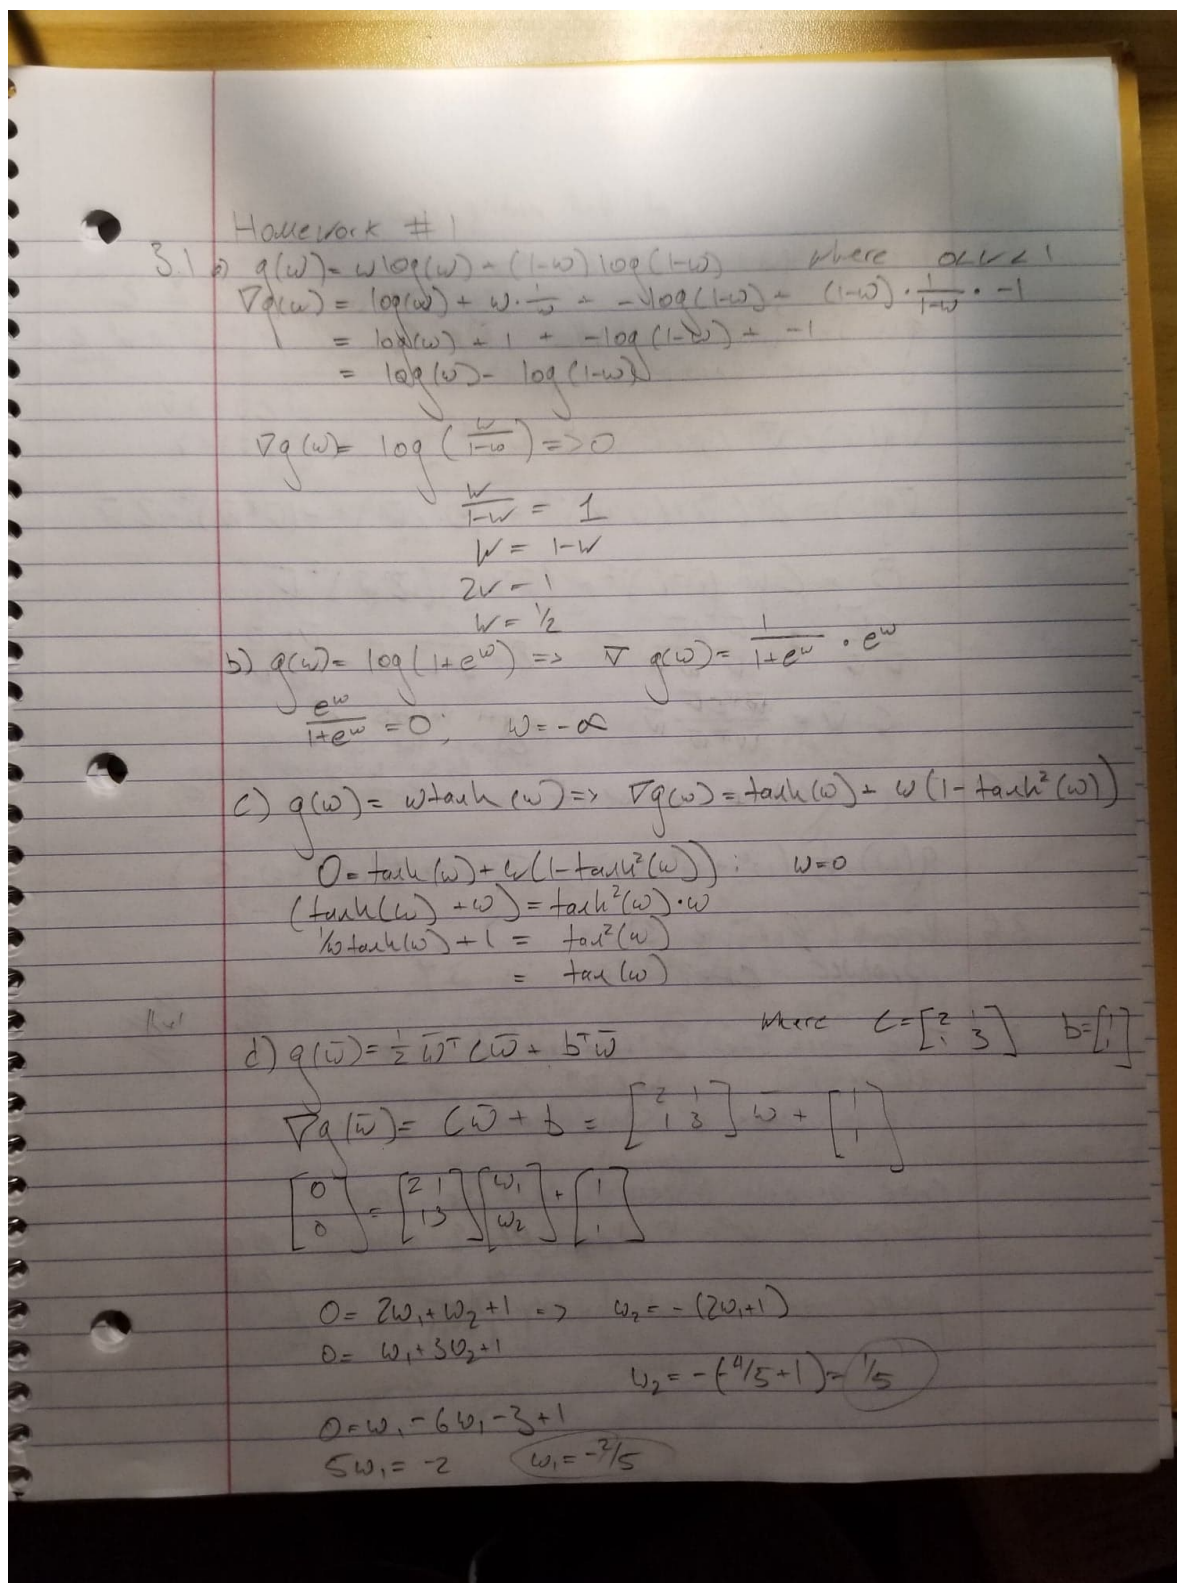 Homework #1
3.1 a) g(w) = w log(w) + (1-w) log(1-w) where 0<w<1
∇g(w) = log(w) + w · 1/w + -log(1-w) + (1-w) · 1/(1-w) · -1
= log(w) + 1 + -log(1-w) + -1
= log(w) - log(1-w)
∇g(w) = log(w/(1-w)) => 0
w/(1-w) = 1
w = 1-w
2w = 1
w = 1/2
b) g(w) = log(1+e^w) => ∇ g(w) = 1/(1+e^w) · e^w
e^w/(1+e^w) = 0; w = -∞
c) g(w) = w tanh(w) => ∇g(w) = tanh(w) + w(1-tanh²(w))
0 = tanh(w) + w(1-tanh²(w)) : w=0
(tanh(w) + w) = tanh²(w)·w
1/w tanh(w) + 1 = tan²(w)
= tan(w)
d) g(w̄) = 1/2 w̄ᵀ C w̄ + bᵀw̄ where C = [2 1; 1 3] b = [1; 1]
∇g(w̄) = C w̄ + b = [2 1; 1 3] w̄ + [1; 1]
[0; 0] = [2 1; 1 3] [w₁; w₂] + [1; 1]
0 = 2w₁ + w₂ + 1 => w₂ = -(2w₁+1)
0 = w₁ + 3w₂ + 1
w₂ = -(-4/5 + 1) = 1/5
0 = w₁ - 6w₁ - 3 + 1
5w₁ = -2 w₁ = -2/5